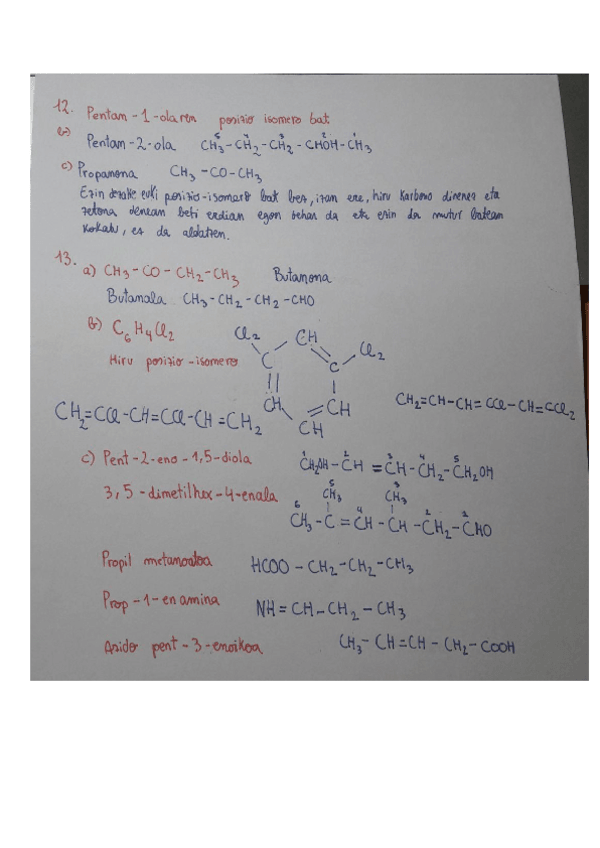 12. Pentan-1-olaren posizio isomero bat
b) Pentan-2-ola CH3-CH2-CH2-CHOH-CH3
c) Propanona CH3-CO-CH3
Ezin dezake euki posizio-isomero bat bez, izan ere, hiru karbono dinenez eta
zetona denean beti erdian egon behar da eta ezin da mutur batean
kokatu, ez da aldatzen.
13. a) CH3-CO-CH2-CH3 Butanona
Butanala CH3-CH2-CH2-CHO
b) C6H4Cl2
Hiru posizio-isomero
Cl2 CH Cl2
C C
CH CH
CH
CH2=CCl-CH=CCl-CH=CH2
CH2=CH-CH=CCl-CH=CCl2
c) Pent-2-eno-1,5-diola CH2OH-CH=CH-CH2-CH2OH
1 2 3 4 5
3,5-dimetilhex-4-enala
CH3 CH3
CH3-C=CH-CH-CH2-CHO
6 5 4 3 2 1
Propil metanoatoa HCOO-CH2-CH2-CH3
Prop-1-enamina NH=CH-CH2-CH3
Azido pent-3-enoikoa CH3-CH=CH-CH2-COOH